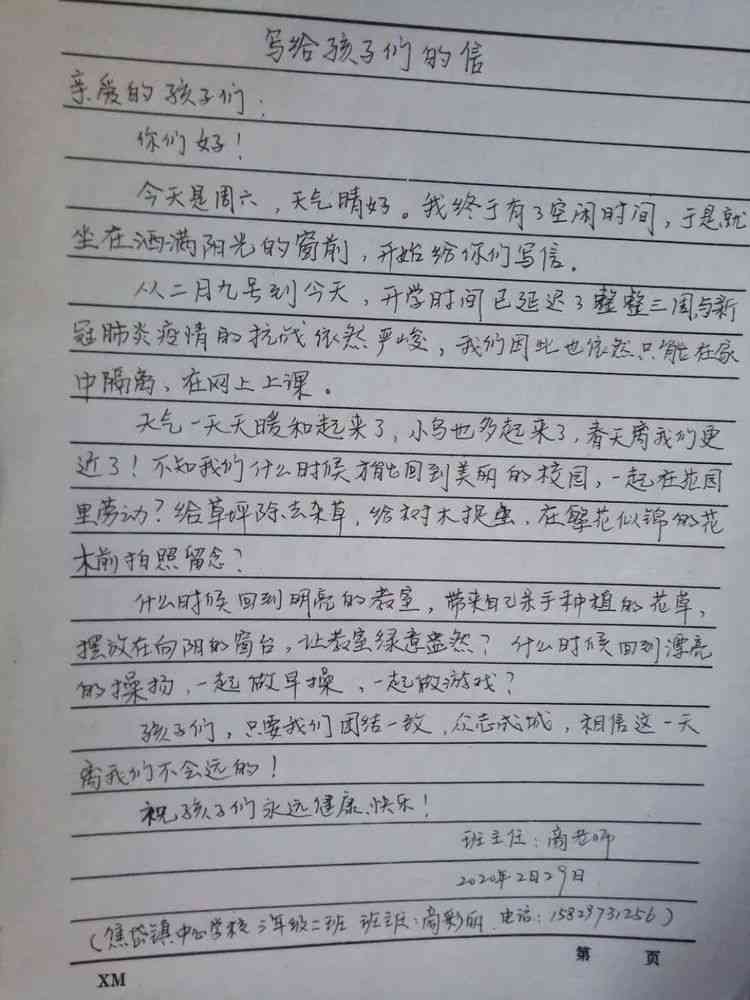 写给孩子们的信
亲爱的孩子们：
你们好！
今天是周六，天气晴好。我终于有了空闲时间，于是就
坐在洒满阳光的窗前，开始给你们写信。
从二月九号到今天，开学时间已延迟了整整三周，与新
冠肺炎疫情的抗战依然严峻，我们因此也依然只能在家
中隔离，在网上上课。
天气一天天暖和起来了，小鸟也多起来了，春天离我们更
近了！不知我们什么时候才能回到美丽的校园，一起在花园
里劳动？给草坪除去杂草，给树木捉虫，在繁花似锦的花
木前拍照留念？
什么时候回到明亮的教室，带来自己亲手种植的花草，
摆放在向阳的窗台，让教室绿意盎然？什么时候回到漂亮
的操场，一起做早操，一起做游戏？
孩子们，只要我们团结一致，众志成城，相信这一天
离我们不会远的！
祝孩子们永远健康、快乐！
班主任：商老师
2020年2月29日
（焦岱镇中心学校 三年级二班 班主任：商彩丽 电话：15829731256）
第 页
XM